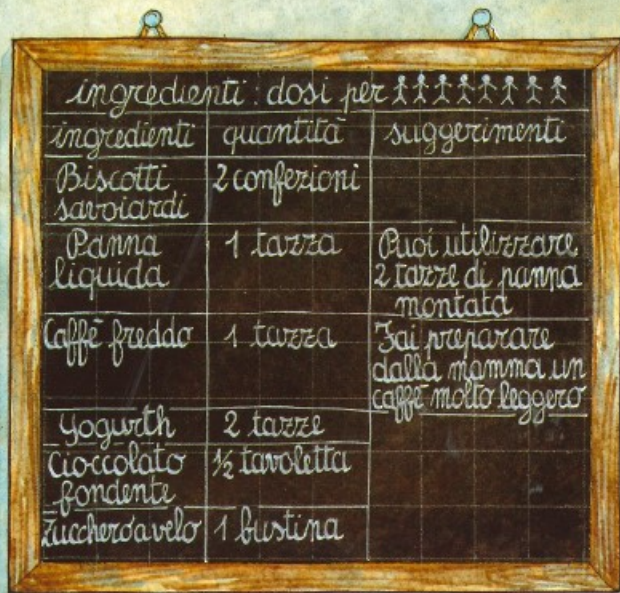 ingredienti: dosi per
ingredienti quantità suggerimenti
Biscotti savoiardi 2 confezioni
Panna liquida 1 tazza Puoi utilizzare 2 tazze di panna montata
Caffè freddo 1 tazza Fai preparare dalla mamma un caffè molto leggero
Yogurth 2 tazze
Cioccolato fondente ½ tavoletta
Zucchero a velo 1 bustina